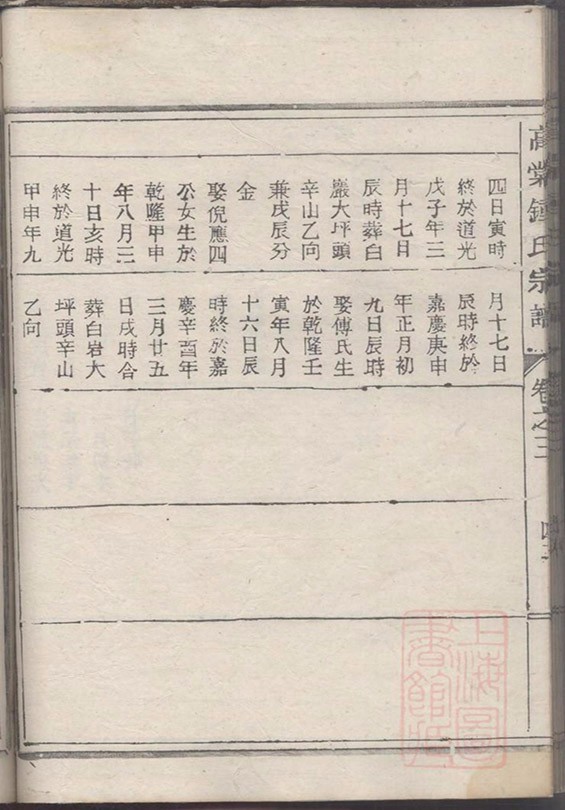 高棠鍾氏宗譜
卷之三
四日寅時
終於道光
戊子年三
月十七日
辰時葬白
巖大坪頭
辛山乙向
兼戌辰分
金
娶倪應四
公女生於
乾隆甲申
年八月二
十日亥時
終於道光
甲申年九
月十七日
辰時終於
嘉慶庚申
年正月初
九日辰時
娶傅氏生
於乾隆壬
寅年八月
十六日辰
時終於嘉
慶辛酉年
三月廿五
日戌時合
葬白岩大
坪頭辛山
乙向
上海圖
書館藏